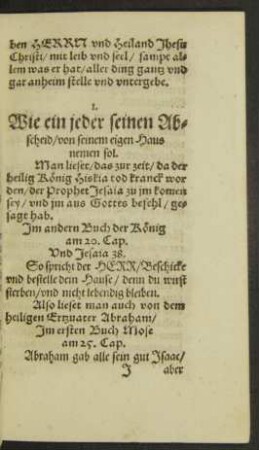 ben HERRN vnd Heiland Jhesu
Christi/mit leib vnd seel/ sampt al-
lem was er hat/aller ding gantz vnd
gar anheim stelle vnd vntergebe.
I.
Wie ein jeder seinen Ab-
scheid/von seinem eigen Haus
nemen sol.
Man lieset/das zur zeit/da der
heilig König Hiskia tod kranck wor
den/der Prophet Jesaia zu jm komen
sey/vnd jm aus Gottes befehl/ge-
sagt hab.
Im andern Buch der König
am 20. Cap.
Vnd Jesaia 38.
So spricht der HERR/Beschicke
vnd bestelle dein Hause/denn du wirst
sterben/vnd nicht lebendig bleiben.
Also lieset man auch von dem
heiligen Ertzuater Abraham/
Im ersten Buch Mose
am 25. Cap.
Abraham gab alle sein gut Isaac/
J aber